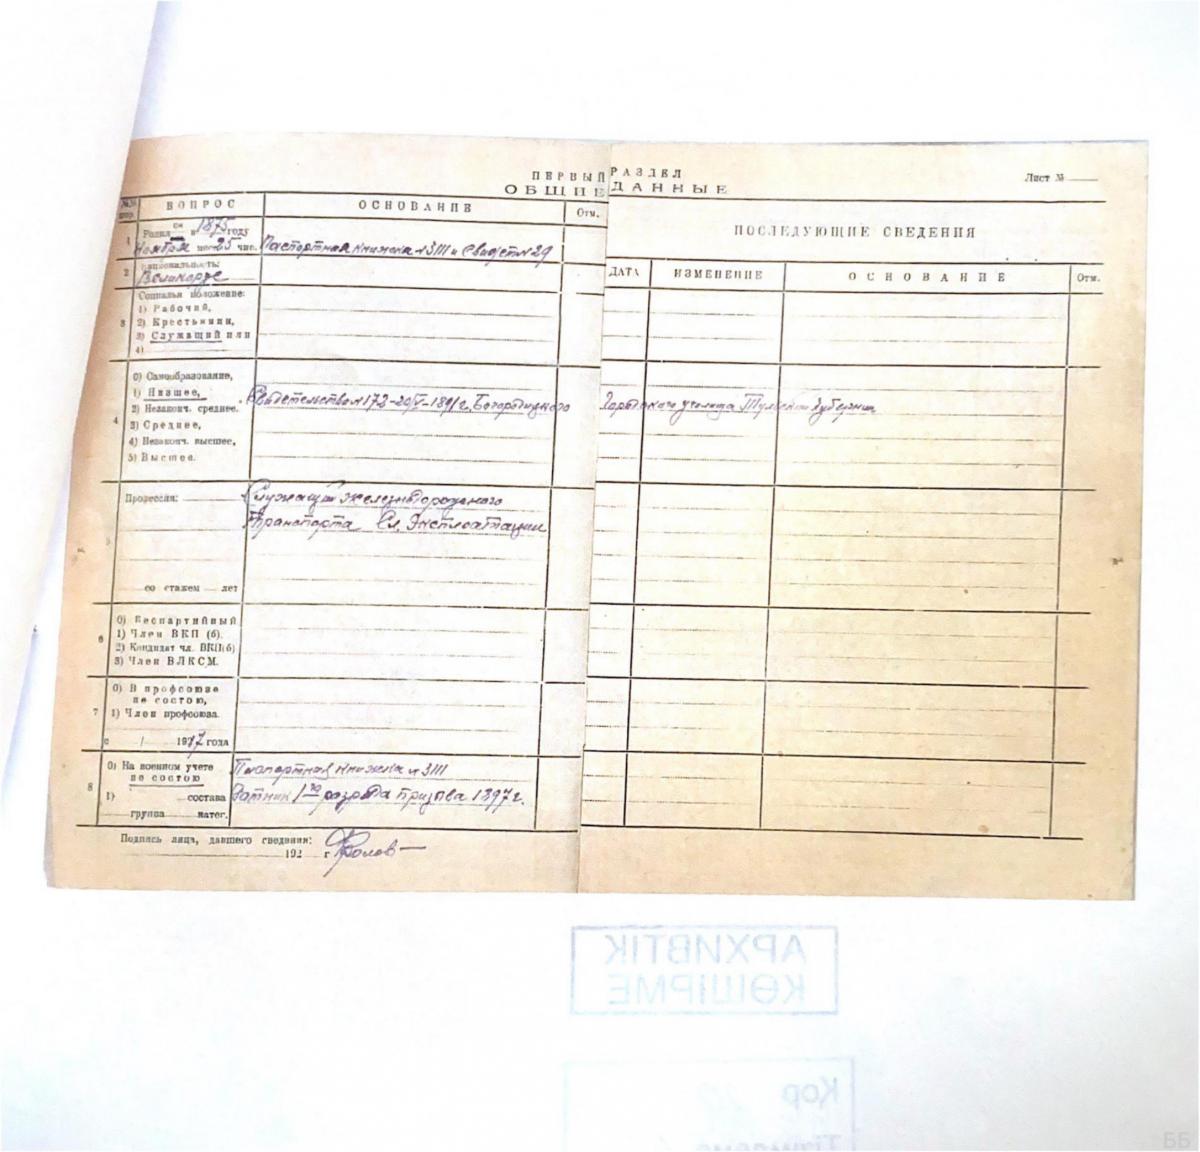 ПЕРВЫЙ РАЗДЕЛ
ОБЩИЕ ДАННЫЕ
Лист №
ВОПРОС
ОСНОВАНИЕ
Отм.
ПОСЛЕДУЮЩИЕ СВЕДЕНИЯ
ДАТА
ИЗМЕНЕНИЕ
ОСНОВАНИЕ
Отм.
1
Родил ся в 1875 году
Ноября мес 25 чис.
Паспортная книжка №3111 и Свидет №29
2
национальность:
Великорус
3
Социальн положение:
1) Рабочий,
2) Крестьянин,
3) Служащий или
4)
4
0) Самообразование,
1) Низшее,
2) Незаконч. среднее.
3) Среднее,
4) Незаконч. высшее,
5) Высшее.
Свидетельство №172-20/V-1891г. Богородицкого Городского училища Тульской губернии
Профессия:
со стажем лет
Служащий железнодорожного
транспорта Сл. Эксплоатации
6
0) Беспартийный
1) Член ВКП (б).
2) Кандидат чл. ВКП(б)
3) Член ВЛКСМ.
7
0) В профсоюзе
не состою,
1) Член профсоюза.
с / 1917 года
8
0) На военном учете
не состою
1) состава
группа катег.
Паспортная книжка №3111
Ратник 1го разряда призыва 1897 г.
Подпись лица, давшего сведения:
192 г.
АРХИВТІК
КӨШІРМЕ
Қор
ББ